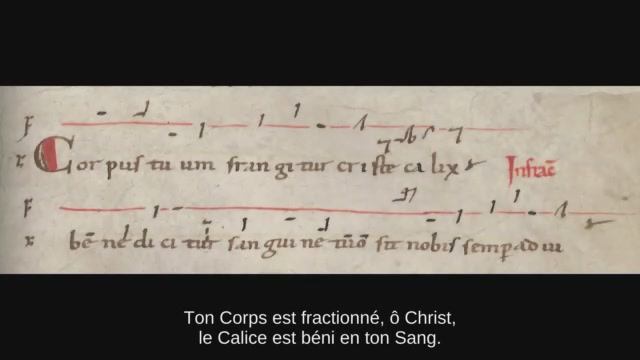 Cor pus tu um fran gi tur cri ste ca lix Infrac̄
bē ne di ci tur san gui ne tuō sit nobis semp ad ui
Ton Corps est fractionné, ô Christ,
le Calice est béni en ton Sang.